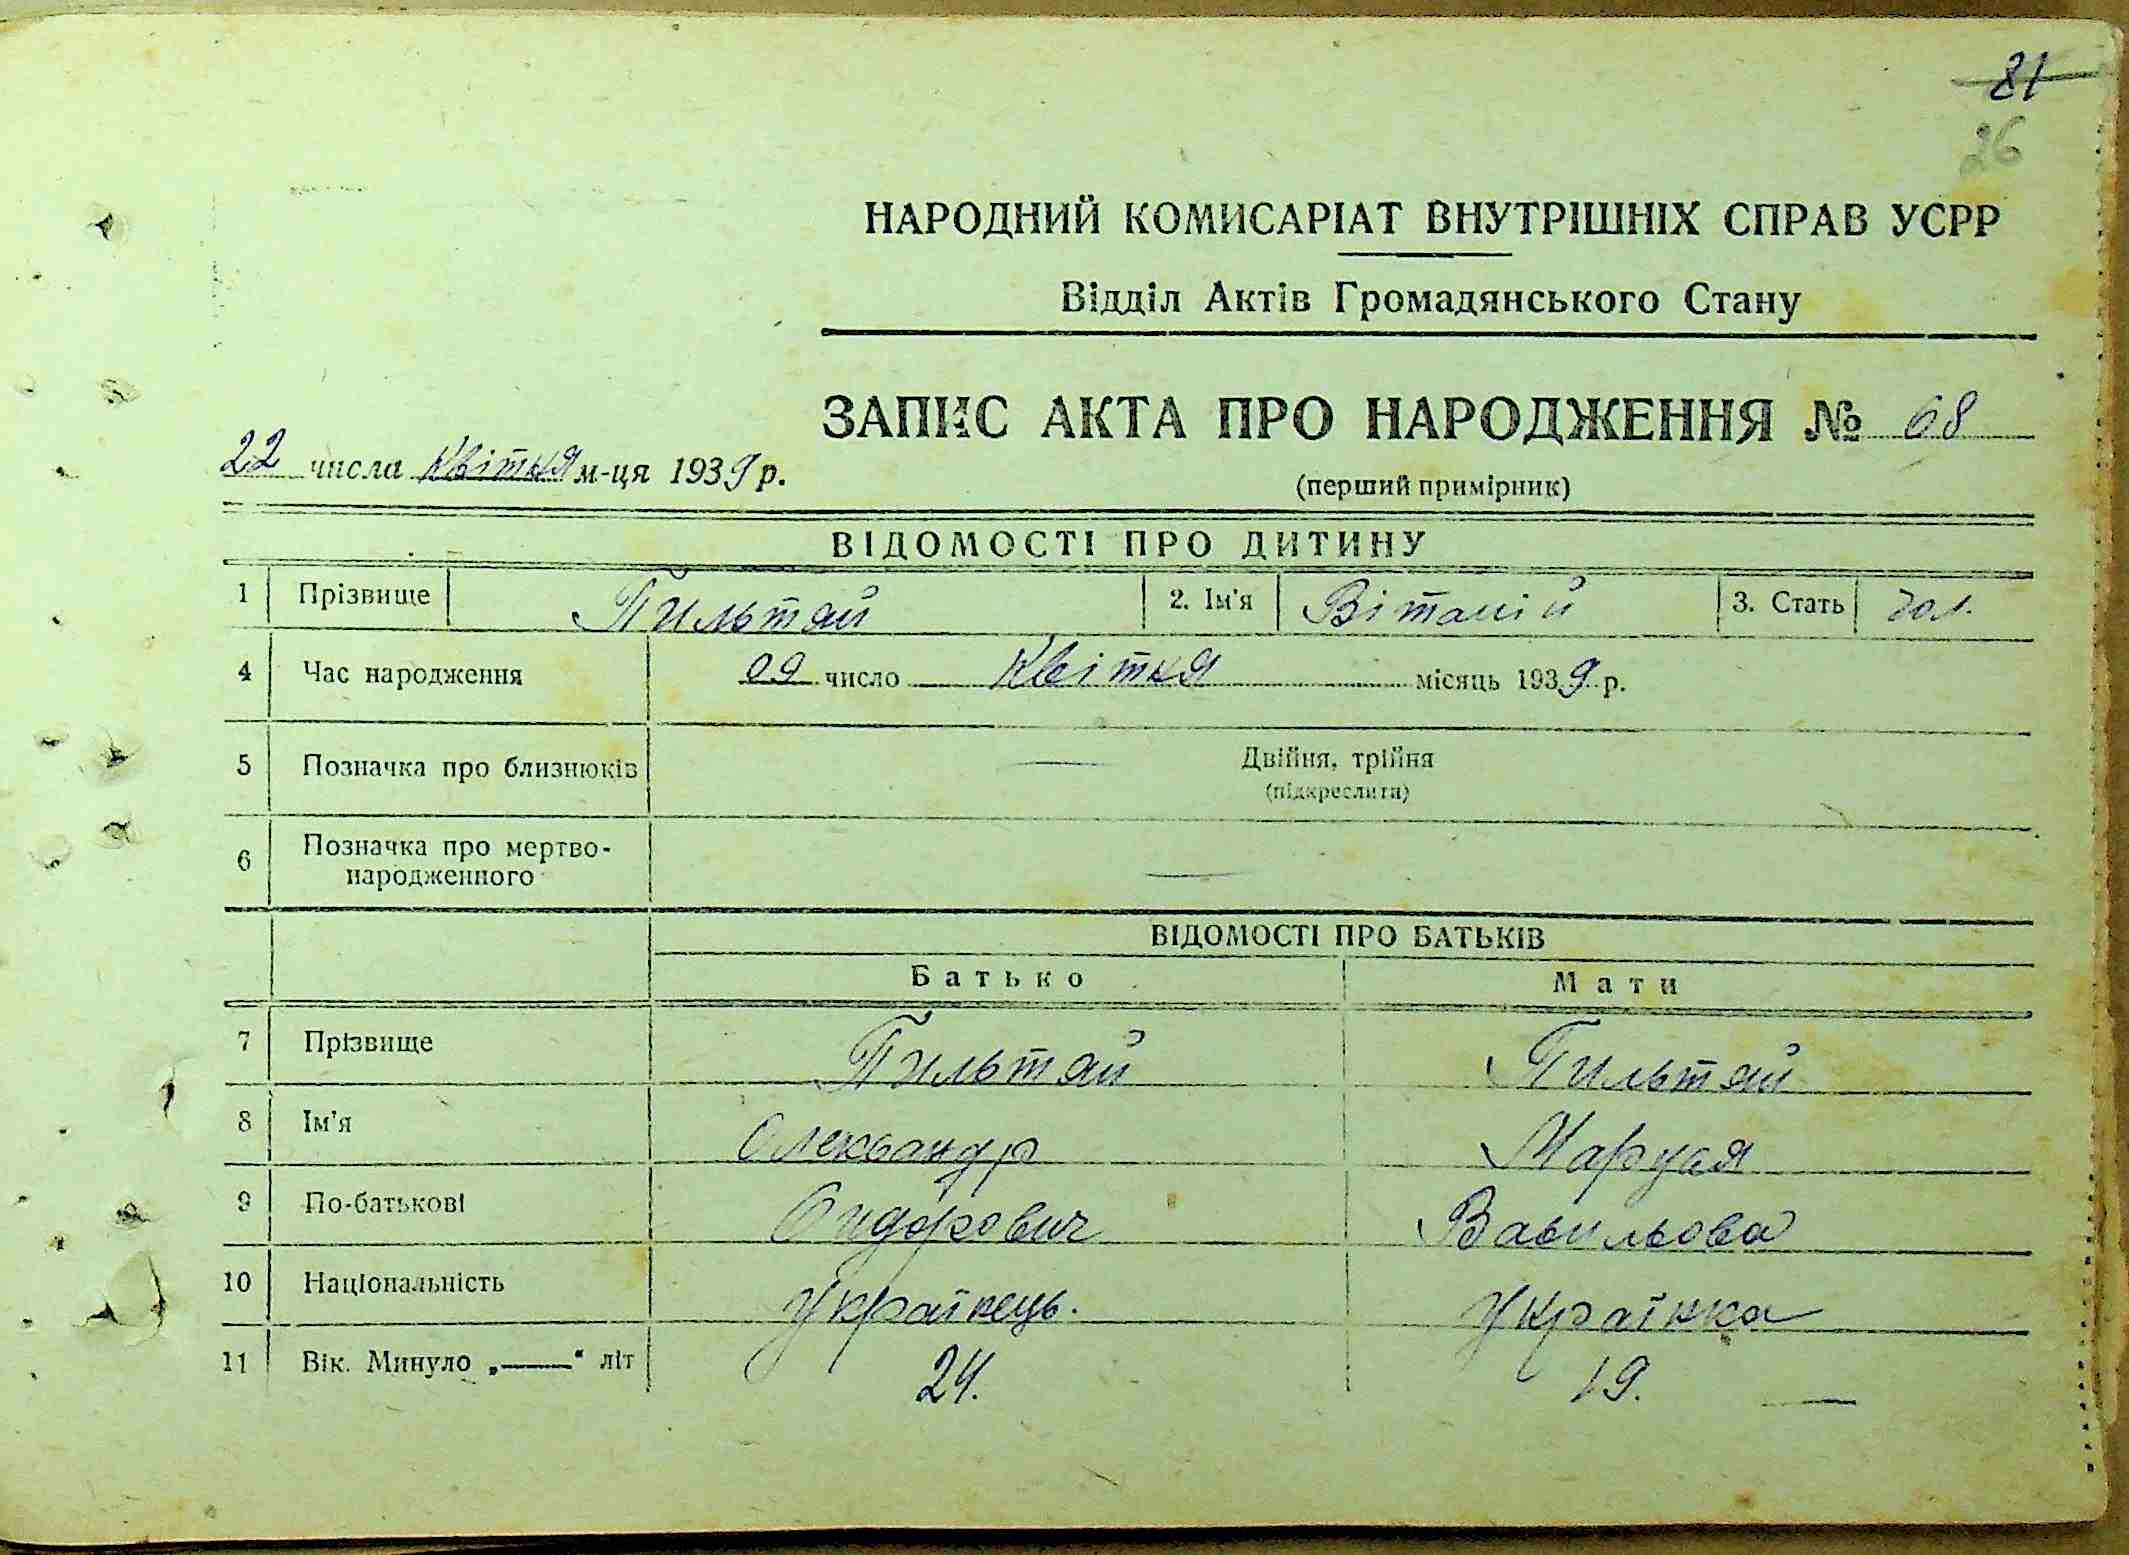 81
26
НАРОДНИЙ КОМИСАРІАТ ВНУТРІШНІХ СПРАВ УСРР
Відділ Актів Громадянського Стану
ЗАПИС АКТА ПРО НАРОДЖЕННЯ № 68
22 числа квітня м-ця 1939 р.
(перший примірник)
ВІДОМОСТІ ПРО ДИТИНУ
1 Прізвище Пильтяй 2. Ім'я Віталій 3. Стать чол.
4 Час народження 09 число квітня місяць 1939 р.
5 Позначка про близнюків — Двійня, трійня
(підкреслити)
6 Позначка про мертво-
народженного —
ВІДОМОСТІ ПРО БАТЬКІВ
Батько Мати
7 Прізвище Пильтяй Пильтяй
8 Ім'я Олександр Маруся
9 По-батькові Сидорович Васильова
10 Національність Українець. Українка
11 Вік. Минуло „——“ літ 24. 19. —